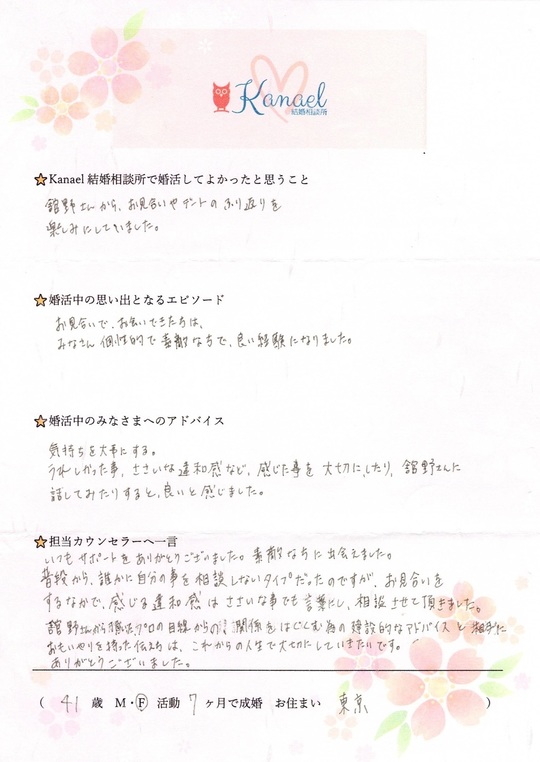 Kanael
結婚相談所
Kanael 結婚相談所で婚活してよかったと思うこと
舘野さんから、お見合いやデートのふり返りを
楽しみにしていました。
婚活中の思い出となるエピソード
お見合いで、お会いできた方は、
みなさん個性的で素敵な方で、良い経験になりました。
婚活中のみなさまへのアドバイス
気持ちを大事にする。
うれしかった事、ささいな違和感など、感じた事を大切にしたり、舘野さんに
話してみたりすると、良いと感じました。
担当カウンセラーへ一言
いつもサポートをありがとうございました。素敵な方に出会えました。
普段から、誰かに自分の事を相談しないタイプだったのですが、お見合いを
するなかで、感じる違和感はささいな事でも言葉にし、相談させて頂きました。
舘野さんから頂いたプロの目線からの、関係をはぐくむ為の建設的なアドバイスと相手に
おもいやりを持った伝え方は、これからの人生で大切にしていきたいです。
ありがとうございました。
( 41 歳 M・F 活動 7 ヶ月で成婚 お住まい 東京 )